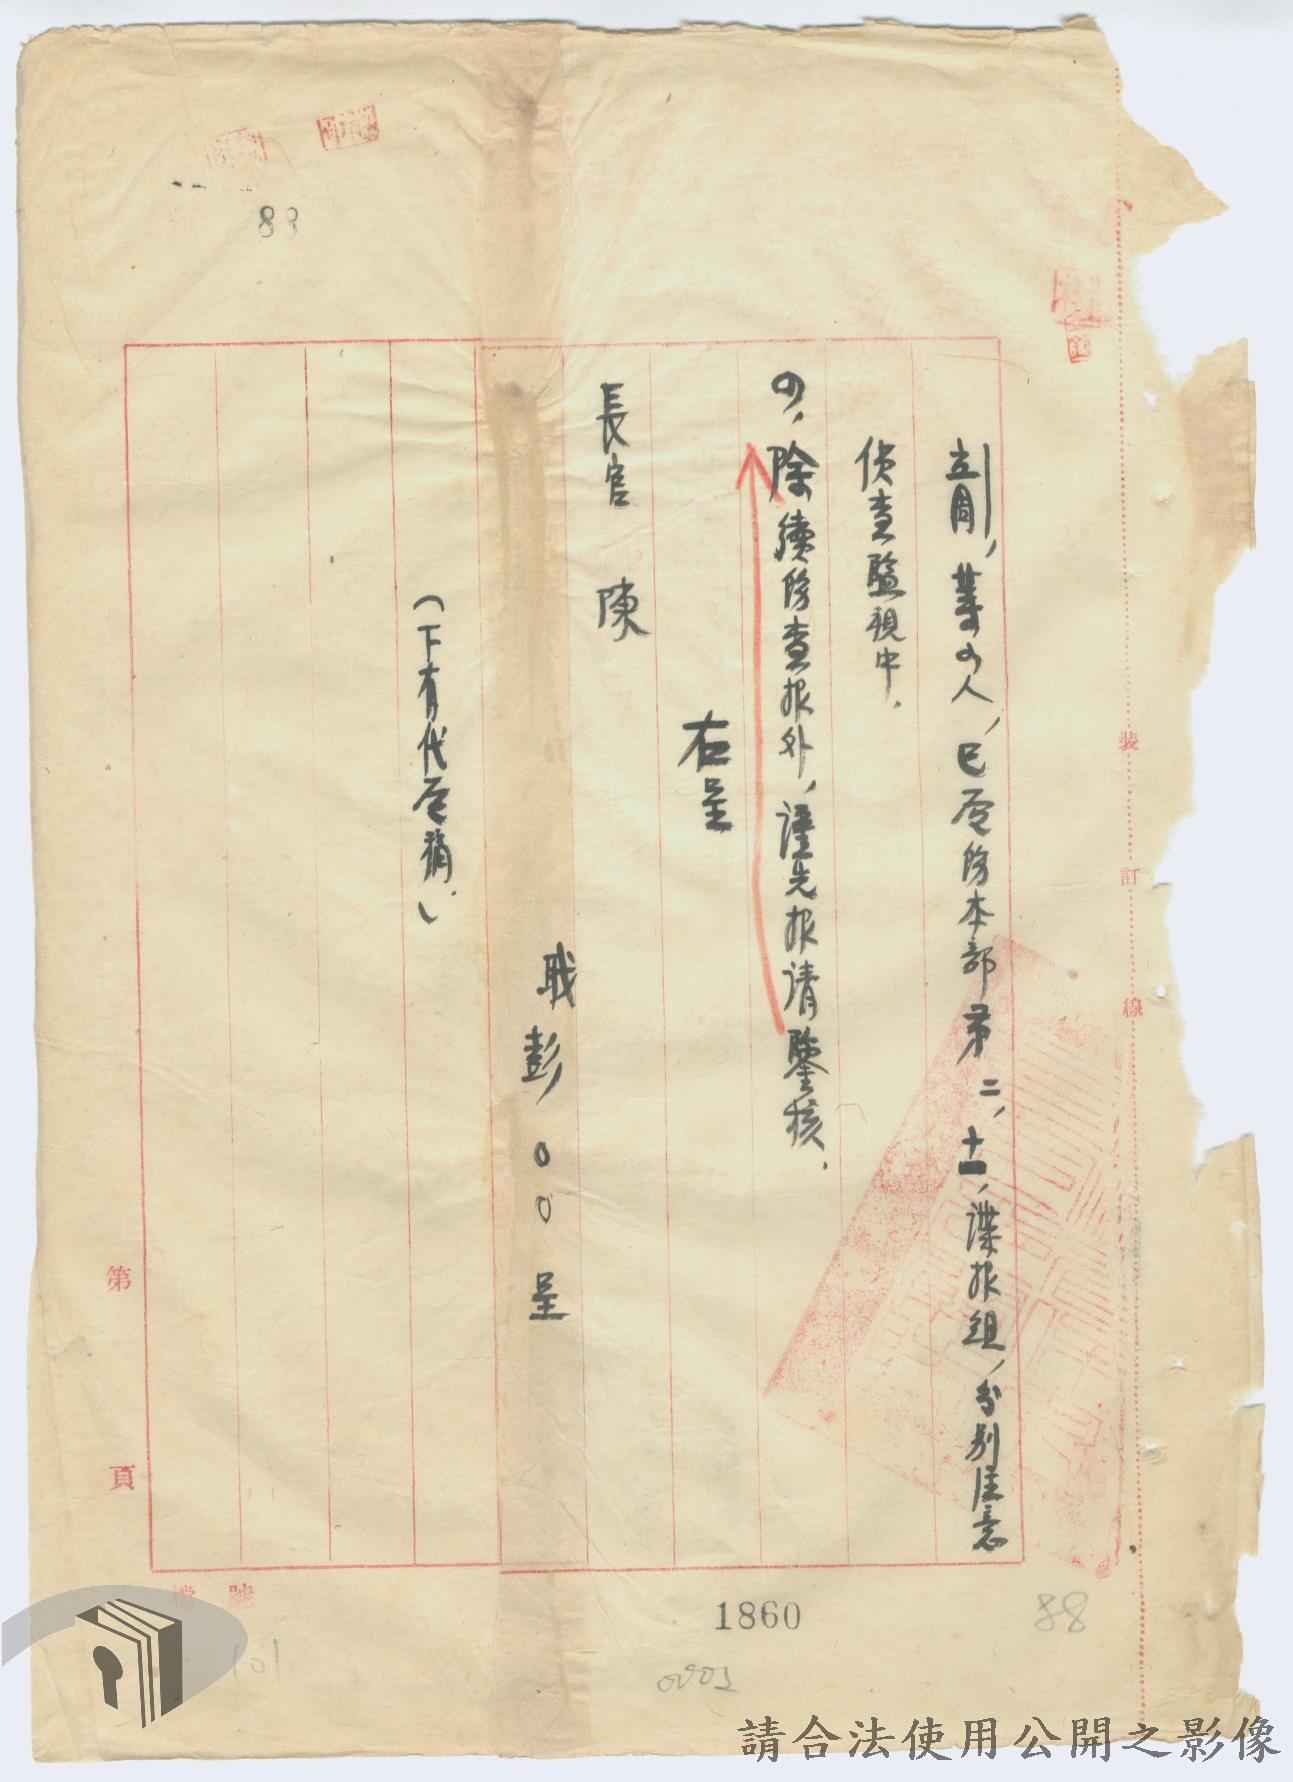 立周，等四人，已電飭本部第二，十一，諜報組，分別注意
偵查監視中.
四，除續飭查报外，謹先报请鑒核.
右呈
長官 陳
職彭00呈
(下有代電稿.)
裝 訂 線
第 頁
檔 號
83
1860
88
101
請合法使用公開之影像